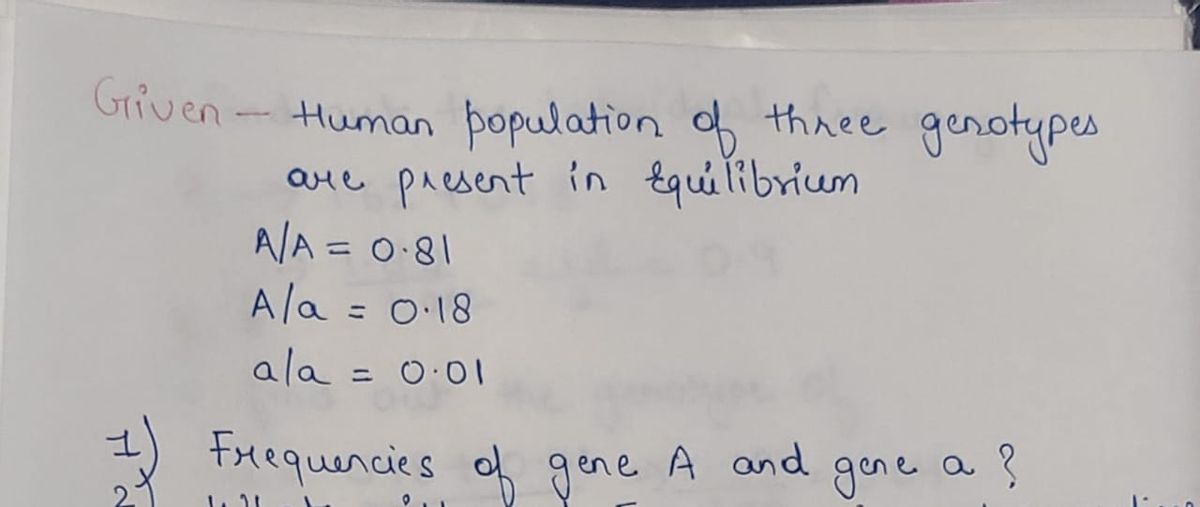 Given - Human population of three genotypes
are present in Equilibrium
A/A = 0.81
A/a = 0.18
a/a = 0.01
1) Frequencies of gene A and gene a ?
2)